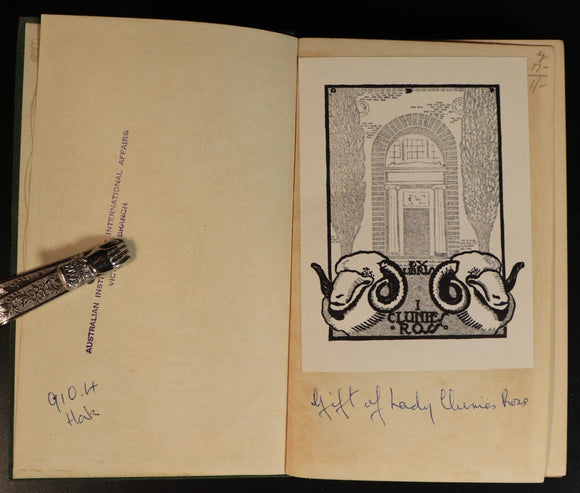 AUSTRALIAN INST INTERNATIONAL AFFAIRS
VIC BRANCH
910.4
Hak
EX
LIBRIS
I
CLUNIES
ROSS
Gift of Lady Clunies Ross